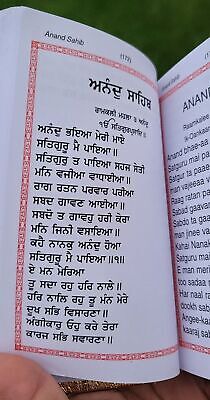 Anand Sahib
(179)
ਅਨੰਦੁ ਸਾਹਿਬ
ਰਾਮਕਲੀ ਮਹਲਾ ੩ ਅਨੰਦੁ
ੴ ਸਤਿਗੁਰਪ੍ਰਸਾਦਿ॥
ਅਨੰਦੁ ਭਇਆ ਮੇਰੀ ਮਾਏ
ਸਤਿਗੁਰੂ ਮੈ ਪਾਇਆ॥
ਸਤਿਗੁਰੁ ਤ ਪਾਇਆ ਸਹਜ ਸੇਤੀ
ਮਨਿ ਵਜੀਆ ਵਾਧਾਈਆ॥
ਰਾਗ ਰਤਨ ਪਰਵਾਰ ਪਰੀਆ
ਸਬਦ ਗਾਵਣ ਆਈਆ॥
ਸਬਦੋ ਤ ਗਾਵਹੁ ਹਰੀ ਕੇਰਾ
ਮਨਿ ਜਿਨੀ ਵਸਾਇਆ॥
ਕਹੈ ਨਾਨਕੁ ਅਨੰਦੁ ਹੋਆ
ਸਤਿਗੁਰੂ ਮੈ ਪਾਇਆ॥੧॥
ਏ ਮਨ ਮੇਰਿਆ
ਤੂ ਸਦਾ ਰਹੁ ਹਰਿ ਨਾਲੇ॥
ਹਰਿ ਨਾਲਿ ਰਹੁ ਤੂ ਮੰਨ ਮੇਰੇ
ਦੂਖ ਸਭਿ ਵਿਸਾਰਣਾ॥
ਅੰਗੀਕਾਰੁ ਓਹੁ ਕਰੇ ਤੇਰਾ
ਕਾਰਜ ਸਭਿ ਸਵਾਰਣਾ॥
Anand Sahib
ANAND
Raamkalee
Ik-Oankaar
Anand bhae-aa
Satgur ta paae
man vajee-aa
Raag ratan
Sabad gaavan
Sabdo ta gaava
man jinee
Kahai Nanak
Satguroo mai
Ay man mayri
too sadaa
Har naal rahu
dookh sabh
Angee-kaar